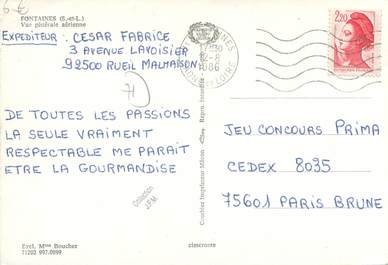 6 €
FONTAINES (S.-et-L.)
Vue générale aérienne
EXPEDITEUR : CESAR FABRICE
3 AVENUE LAVOISIER
92500 RUEIL MALMAISON
71
17H30
12-8
1986
LOIRE
2,20
DE TOUTES LES PASSIONS
LA SEULE VRAIMENT
RESPECTABLE ME PARAIT
ETRE LA GOURMANDISE
Collection
J.F.M.
Combier Imprimeur Mâcon
JEU CONCOURS PRIMA
CEDEX 8035
75601 PARIS BRUNE
Excl. Mme Boucher
71202 997.0099
cimcrome